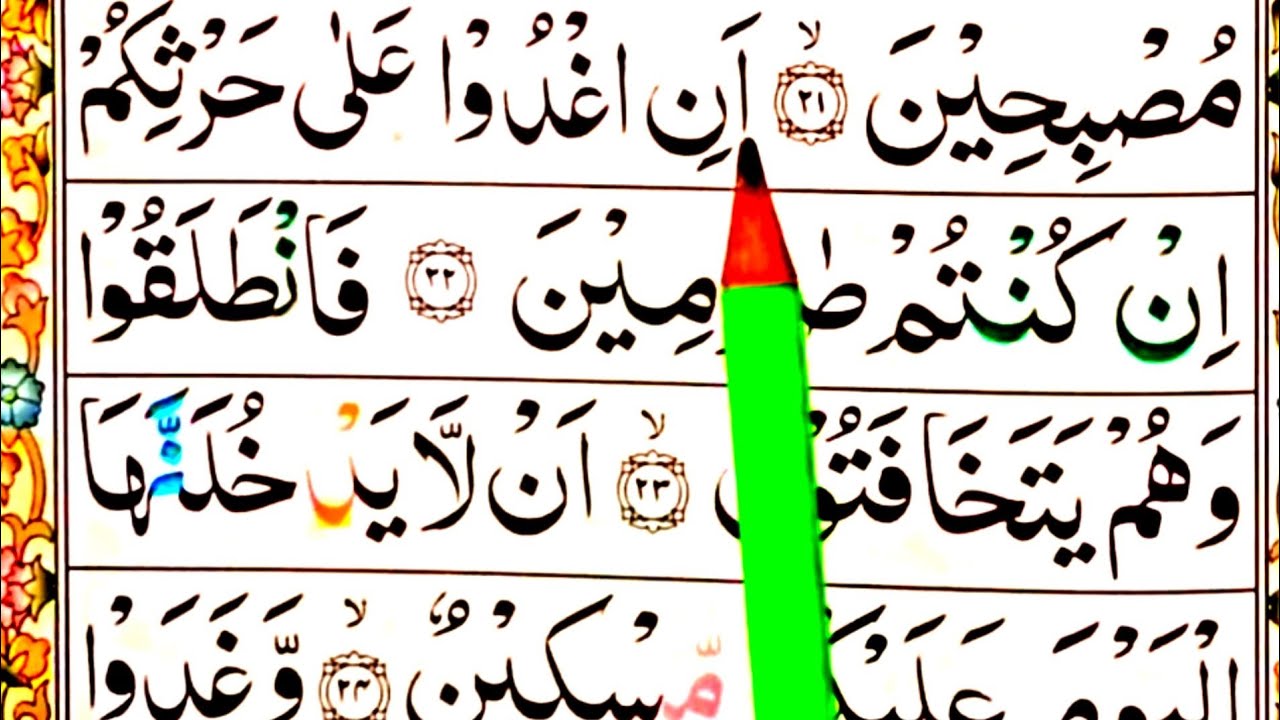 مُصْبِحِيْنَ ۙ﴿۲۱﴾ اَنِ اغْدُوْا عَلٰى حَرْثِكُمْ
اِنْ كُنْتُمْ صٰرِمِيْنَ ﴿۲۲﴾ فَانْطَلَقُوْا
وَهُمْ يَتَخَافَتُوْنَ ۙ﴿۲۳﴾ اَنْ لَّا يَدْخُلَنَّهَا
الْيَوْمَ عَلَيْكُمْ مِّسْكِيْنٌ ۙ﴿۲۴﴾ وَّغَدَوْا